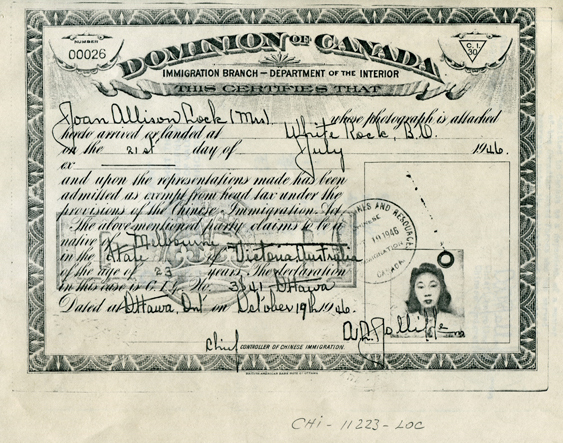 NUMBER
00026
C.I.
30
DOMINION OF CANADA
IMMIGRATION BRANCH – DEPARTMENT OF THE INTERIOR
THIS CERTIFIES THAT
Joan Allison Lock (Mrs) whose photograph is attached
hereto arrived or landed at White Rock, B.C.
on the 21st day of July 1946.
ex
and upon the representations made has been
admitted as exempt from head tax under the
provisions of the Chinese Immigration Act
The abovementioned party claims to be a
native of Melbourne
in the State of Victoria, Australia
of the age of 23 years. The declaration
in this case is C.I.5. No. 3541 Ottawa
Dated at Ottawa, Ont on October 19th 1946.
Chief CONTROLLER OF CHINESE IMMIGRATION.
MINES AND RESOURCES
CHINESE
1946
IMMIGRATION
CANADA
CHI - 11223 - LOC